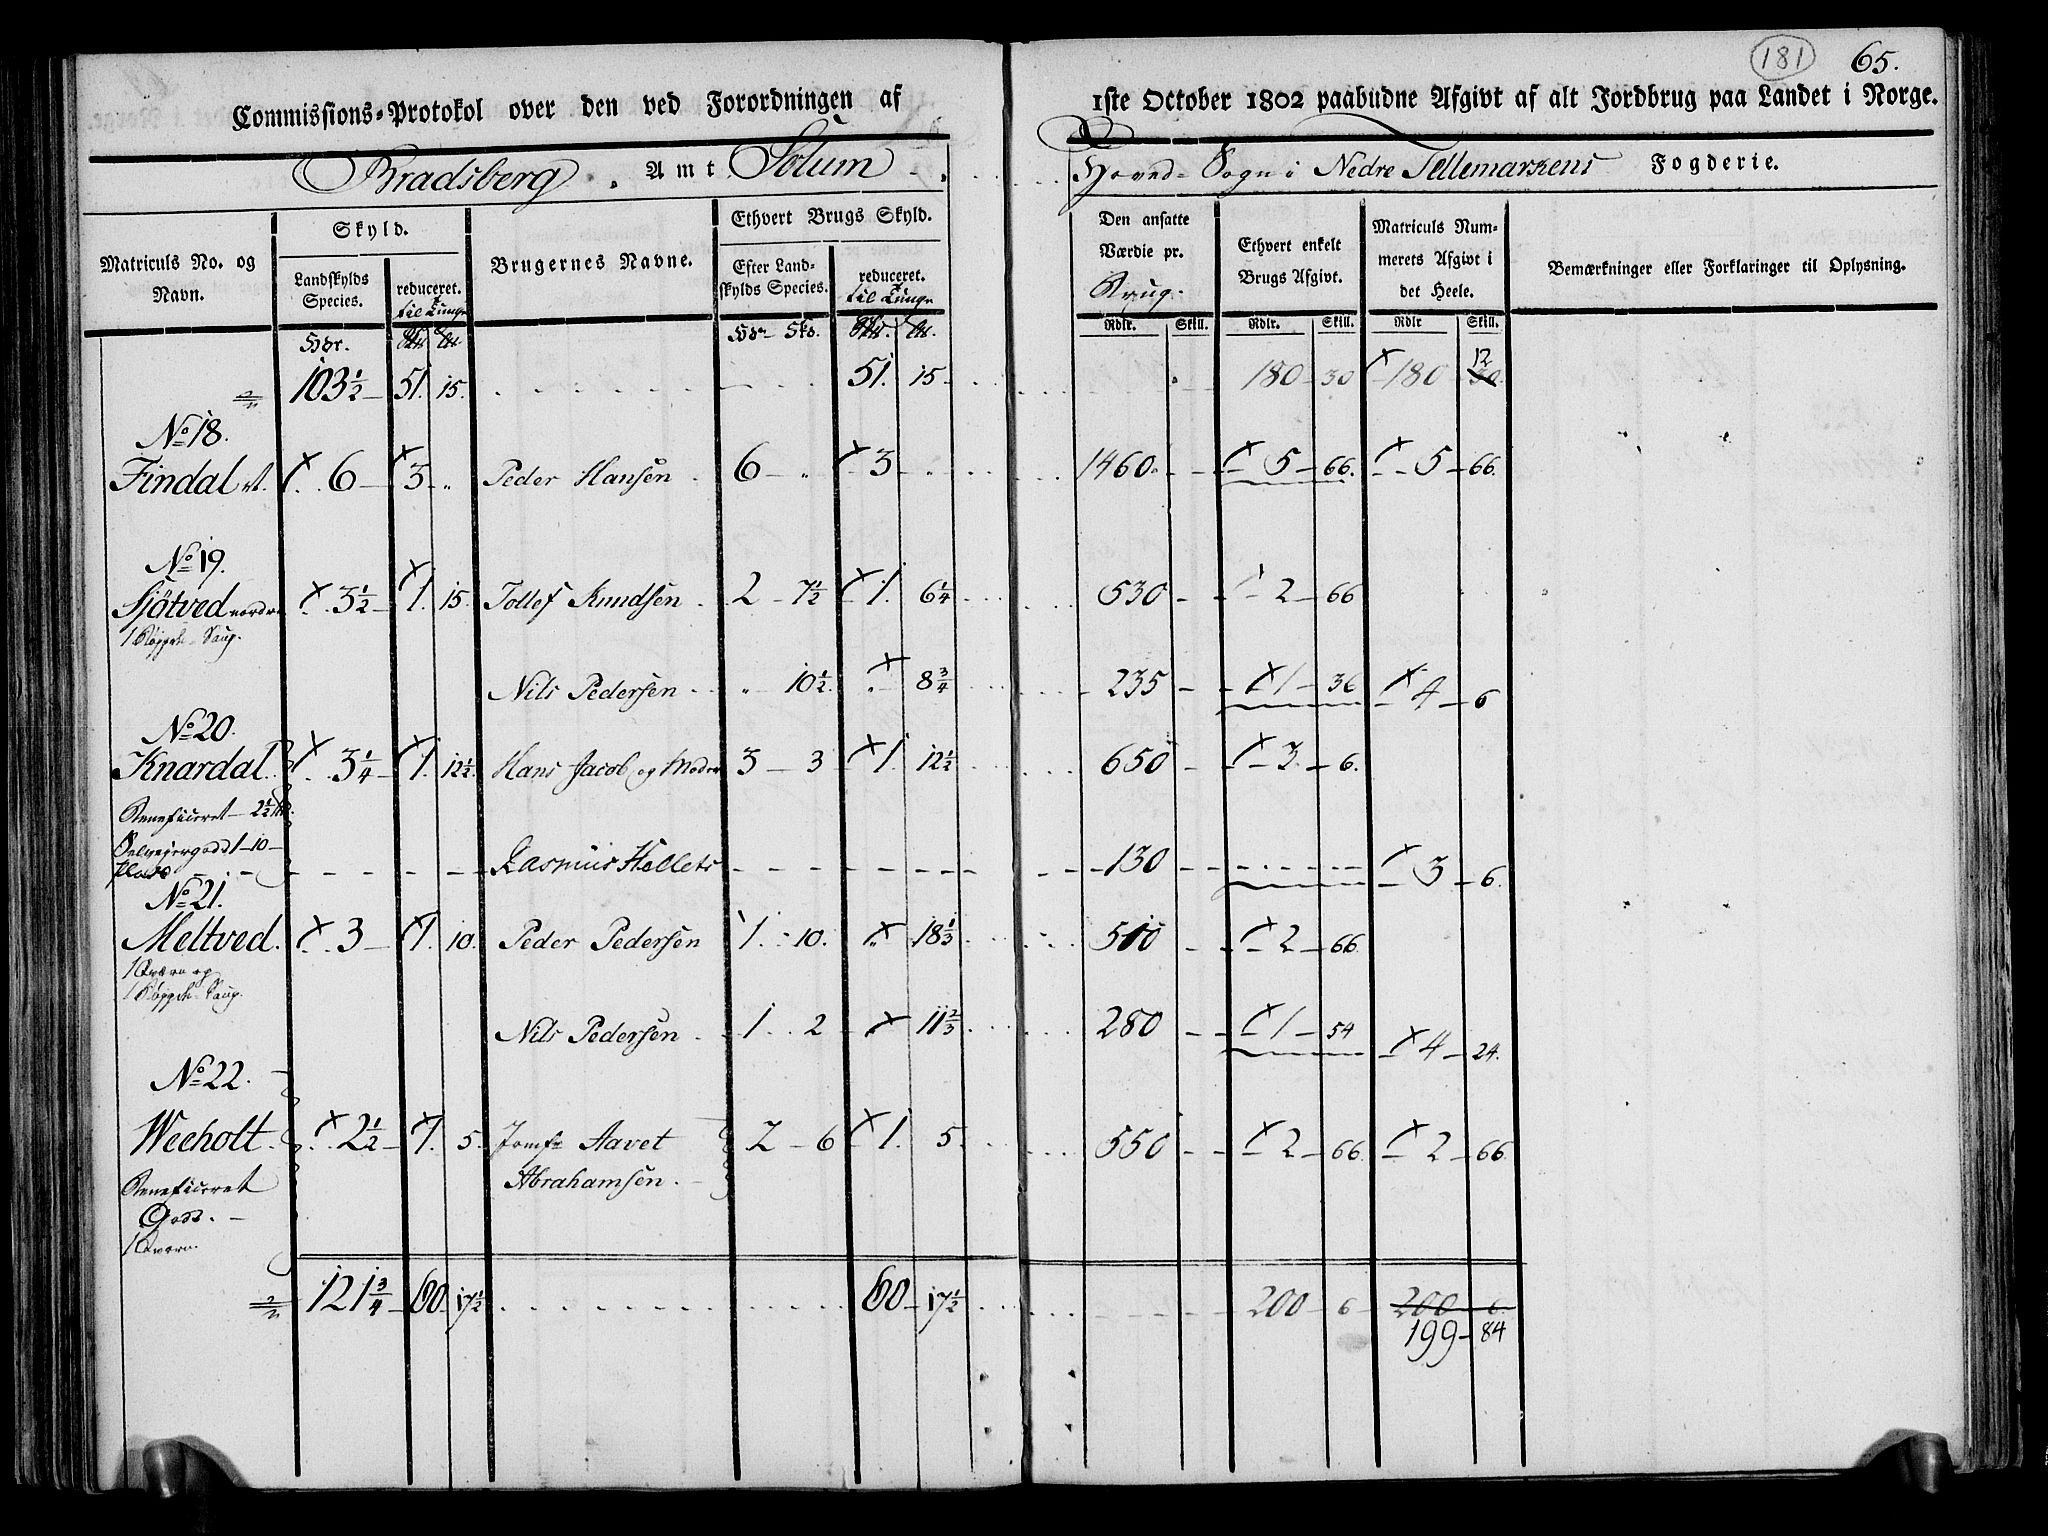 181 65.
Commissions-Protokol over den ved Forordningen af 1ste October 1802 paabudne Afgivt af alt Jordbrug paa Landet i Norge.
Bradsberg Amt Solum Hoved-Sogn i Nedre Tellemarkens Fogderie.
Matriculs No. og Navn.
Skyld.
Landskylds Species.
reduceret. til Tunge
Brugernes Navne.
Ethvert Brugs Skyld.
Efter Landskylds Species.
reduceret. til Tunge
Den ansatte Værdie pr. Brug.
Ethvert enkelt Brugs Afgivt.
Matriculs Nummerets Afgivt i det Heele.
Bemærkninger eller Forklaringer til Oplysning.
Rdlr. Skill. Rdlr. Skill. Rdlr Skill.
103 1/2 51. 15. 51. 15 180 30 180 30 12
No 18.
Findal 6 3 Peder Hansen 6 3 1460 5 66. 5 66.
No 19.
Siötved nordre 3 1/2 1. 15. Tollef Knudsen 2 7 1/2 1. 6 1/4 530 2 66
1 Bögde Saug.
Nils Pedersen 10 1/2 8 3/4 235 1 36 4 6
No 20.
Knardal 3 1/4 1. 12 1/2 Hans Jacob og Moder 3 3 1. 12 1/2 650 3 6.
Beneficeret 2 1/2
Selveiergods 1 10
Plads Rasmus Hellets 130 3 6.
No 21.
Meltved. 3 1. 10. Peder Pedersen 1. 10. 18 1/3 510 2 66.
1 Qværn og
1 Bögde Saug.
Nils Pedersen 1 2 11 2/3 280 1 54 4 24.
No 22.
Weeholt. 2 1/2 1. 5. Jomfr Aavet 2 6 1. 5. 550 2 66. 2 66.
Abrahamsen.
Beneficeret
Gods.
1 Qværn.
121 3/4 60 17 1/2 60 17 1/2 200 6 200 6
199 84